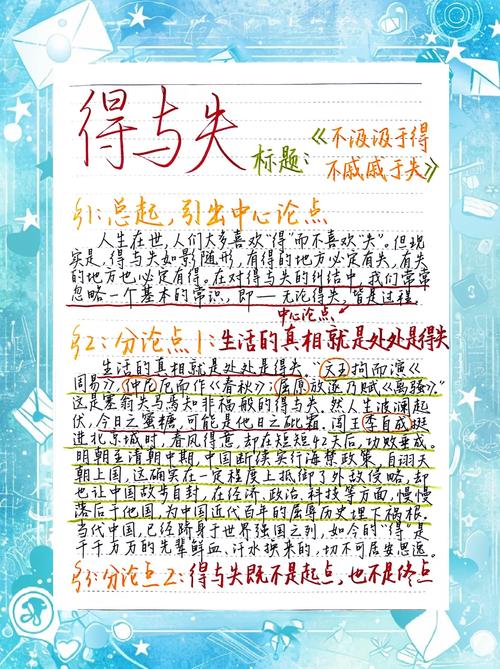 得与失
标题:《不汲汲于得
不戚戚于失》
§1:总起,引出中心论点
人生在世,人们大多喜欢“得”而不喜欢“失”。但现
实是,得与失如影随形,有得的地方必定有失,有失
的地方也必定有得。在对得与失的纠结中,我们常常
忽略一个基本的常识,即——无论得失,皆是过程。
中心论点
§2:分论点1:生活的真相就是处处是得失
生活的真相就是处处是得失。“文王拘而演《
周易》,仲尼厄而作《春秋》;屈原放逐乃赋《离骚》”
这是塞翁失马焉知非福般的得与失。然人生波澜起
伏,今日之蜜糖,可能是他日之砒霜。闯王李自成挺
进北京城时,春风得意,却在短短42天后,功败垂成。
明朝至清朝中期,中国断续实行海禁政策,自诩天
朝上国,这确实在一定程度上抵御了外敌侵略,却
也让中国故步自封,在经济、政治、科技等方面,慢慢
落后于他国,为中国近代百年的屈辱历史埋下祸根。
当代中国,已经跻身于世界强国之列,如今的“得”是
千千万万的先辈鲜血、汗水换来的,切不可居安思逸。
§3:分论点2:得与失既不是起点,也不是终点